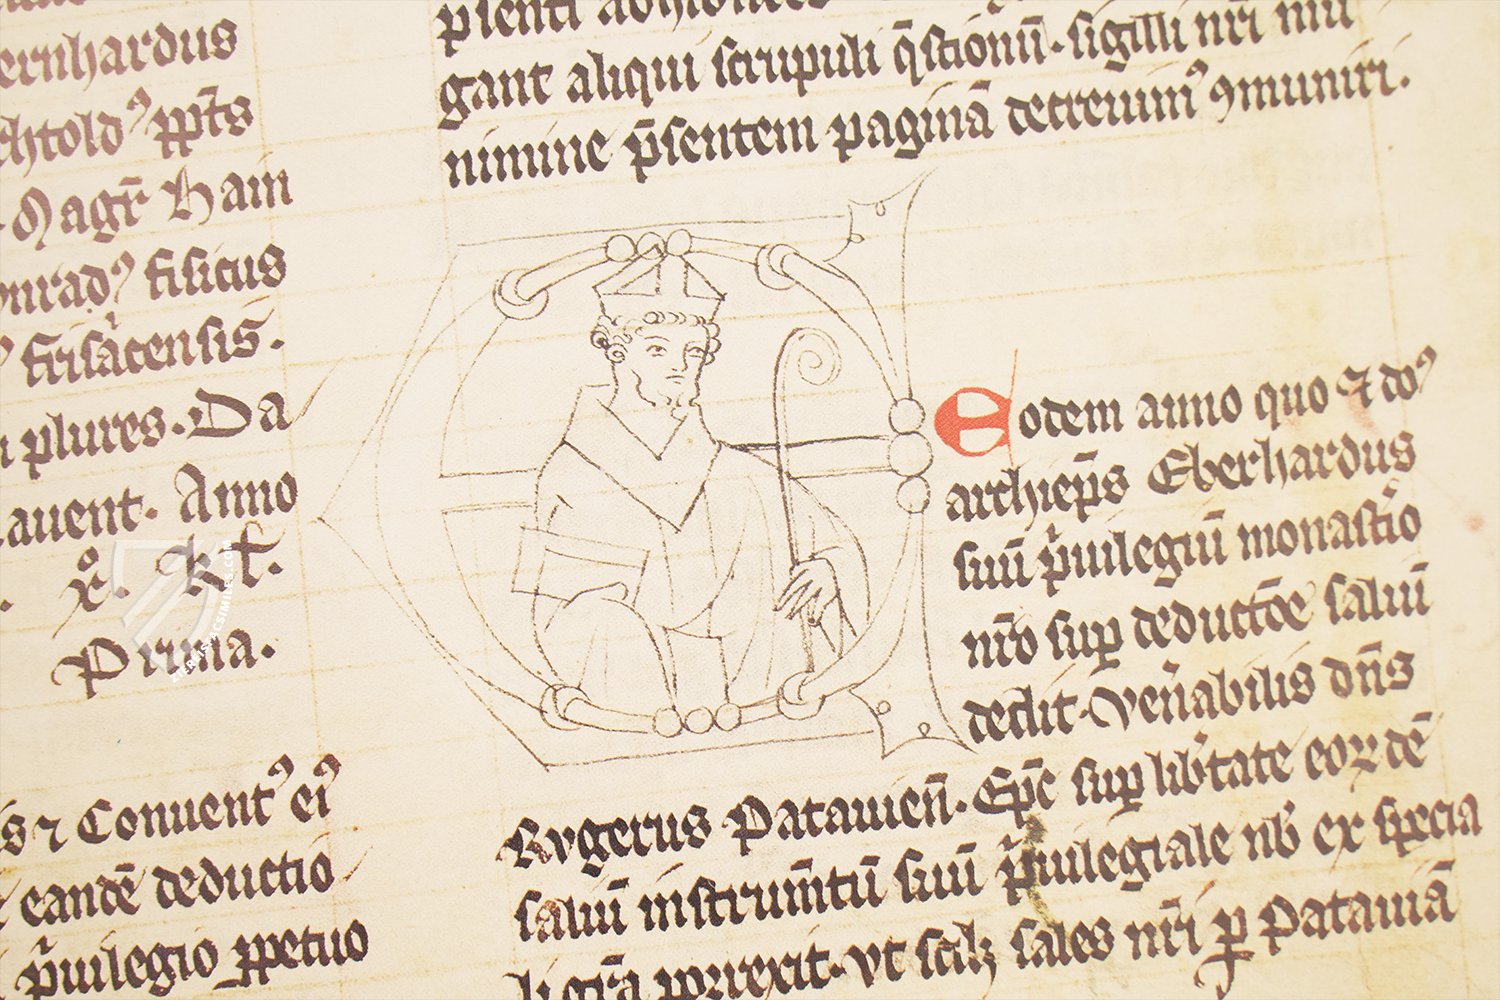 ernhardus
chtoldꝰ p̱pt̄s
Magr̄ Hain
onradꝰ fisicus
frisacensis.
plures. Da
auent. Anno
x°. kl̄.
Prima.
ꝛ Conuentꝰ eiꝰ
eandē deductio
p̄uilegio ꝑpetuo
pienti
gant aliqui scrupuli q̄stionū. sigilli nr̄i mu
nimine p̄sentem paginā decreuimꝰ ꝯmuniri.
Eodem anno quo ⁊ doꝰ
archiep̄s Eberhardus
suū p̄uilegiū monastio
nr̄o suꝑ deductōe saliū
dedit. Ven̄abilis dn̄s
Rvgerus Patauien̄. Ep̄c suꝑ lib̄tate eoꝝdē
saliū instrum̄tū suū p̄uilegiale nob̄ ex specia
li gr̄a porrexit. vt scilꝫ sales nr̄i ꝑ Patauiā